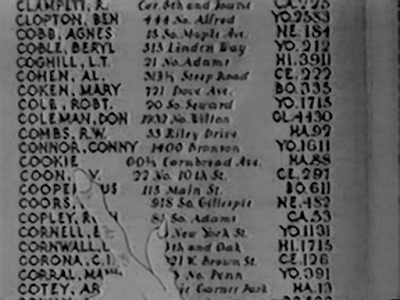 CLAMPETT, R. Cor. 8th and CA.225
CLOPTON, BEN 444 No. Alfred YO.2583
COBB, AGNES 15 So. Maple Ave. NE.184
COBLE, BERYL 313 Linden Way YO.212
COGHILL, L.T. 21 No. Adams HI.3911
COHEN, AL. Steep Road CE.222
COKEN, MARY 721 Dove Ave. BO.335
COLE, ROBT. 90 So. Seward YO.1715
COLEMAN, DON 1932 No. Wilton GL.4430
COMBS, R.W. 33 Riley Drive HA.92
CONNOR, CONNY 1400 Bronson YO.1611
COOKIE 00½ Cornbread Ave. HA.88
COON, V. 22 No. 10th St. CE.297
COOPE US 115 Main St. BO.611
COORS, 918 So. Gillespie NE.482
COPLEY, R H 8 So. Adams CA.53
CORNELL, E New York St. YO.1131
CORNWALL, L th and Oak HI.1715
CORONA, C.I 21 W. Brown St. CE.126
CORRAL, MA No. Penn YO.391
COTEY, AR Garner Park HA.13